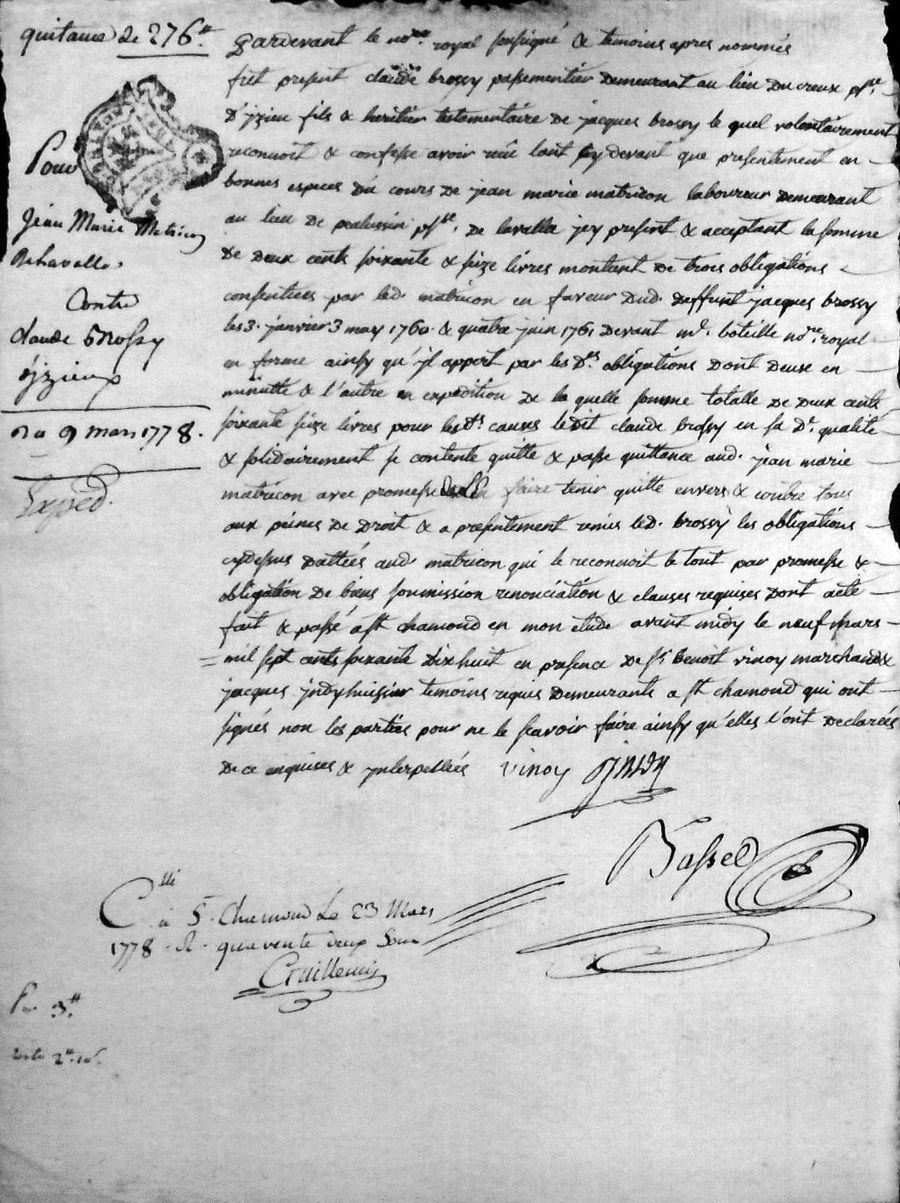 quitance de 276ᵗᵗ
Pour
Jean Marie Matricon
de lavalla.
Contre
claude Brossy
d'jzieux
du 9 mars 1778.
Exped.
Pardevant le noʳᵉ royal soussigné & temoins apres nommés
fut present claude brossy passementier demeurant au lieu du creux psse.
d'jzieu fils & heritier testamentaire de jacques brossy le quel volontairement
reconnoit & confesse avoir reçu tant cy devant que presentement en
bonnes especes du cours de jean marie matricon laboureur demeurant
au lieu de psse. de lavalla jcy present & acceptant la somme
de deux cents soixante & seize livres montant de trois obligations
consenties par led. matricon en faveur dud. deffunt jacques brossy
les 3. janvier 3 may 1760. & quatre juin 1761 devant mᵉ. boteille noʳᵉ. royal
en forme ainsy qu'jl appert par les dᵗᵉˢ obligations dont deux en
minutte & l'autre en expedition de la quelle somme totalle de deux cents
soixante seize livres pour les dᵗᵉˢ causes ledit claude brossy en sa dᵗᵉ. qualité
& solidairement se contente quitte & passe quittance aud. jean marie
matricon avec promesse faire tenir quitte envers & contre tous
aux peines de droit & a presentement remis led. brossy les obligations
cydessus dattées aud. matricon qui le reconnoit le tout par promesse &
obligation de biens soumission renonciation & clauses requises dont acte
fait & passé a sᵗ chamond en mon etude avant midy le neuf mars
mil sept cents soixante dix huit en presence de sʳ. benoit vinoy marchand &
jacques jndy huissier temoins requis demeurants a sᵗ chamond qui ont
signés non les parties pour ne le scavoir faire ainsy qu'elles l'ont declarées
de ce enquises & jnterpellées vinoy jndy
Bassed
Cˡˡᵉ à S. Chamond le 23 Mars
1778. R. quarente deux sous
3ᵗᵗ